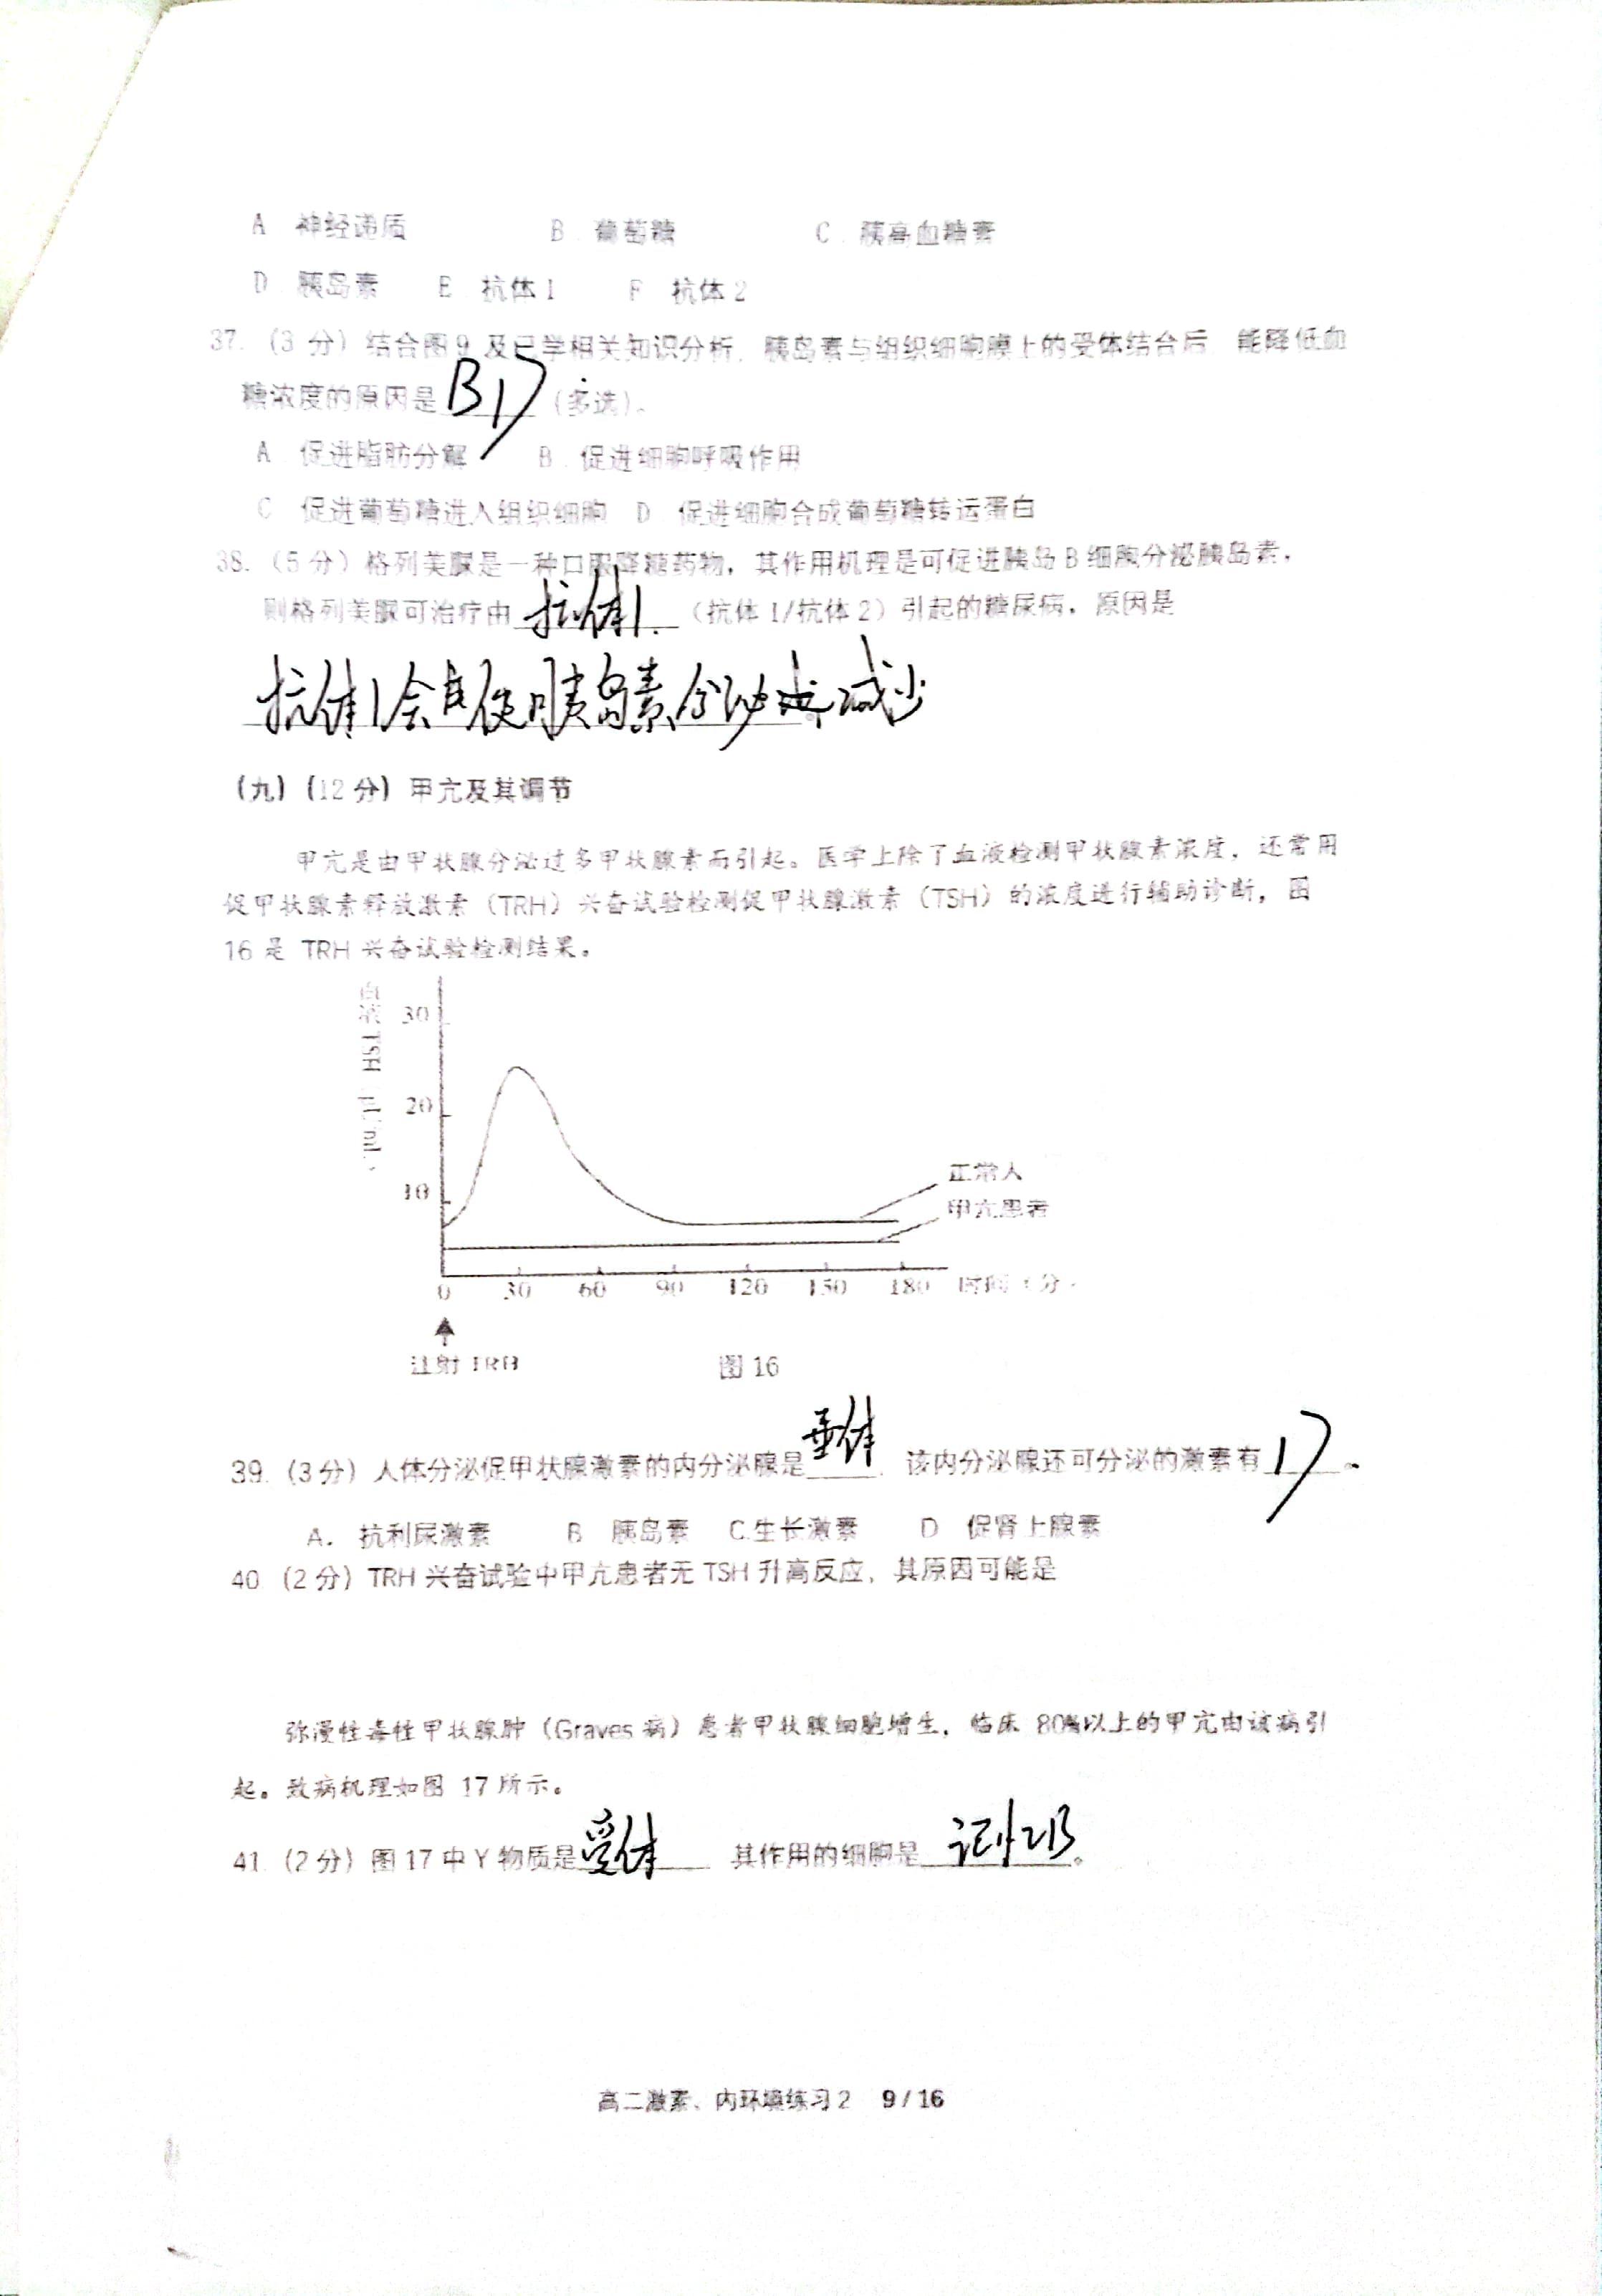 A 神经递质 B. 葡萄糖 C. 胰高血糖素
D. 胰岛素 E 抗体1 F 抗体2
37. (3 分) 结合图9 及已学相关知识分析, 胰岛素与组织细胞膜上的受体结合后 能降低血
糖浓度的原因是 BD (多选)。
A. 促进脂肪分解 B. 促进细胞呼吸作用
C 促进葡萄糖进入组织细胞 D 促进细胞合成葡萄糖转运蛋白
38. (5 分) 格列美脲是一种口服降糖药物, 其作用机理是可促进胰岛 B 细胞分泌胰岛素,
则格列美脲可治疗由 抗体1. (抗体 1/抗体 2) 引起的糖尿病, 原因是
抗体1会 使胰岛素分泌 减少
(九) (12 分) 甲亢及其调节
甲亢是由甲状腺分泌过多甲状腺素而引起。医学上除了血液检测甲状腺素浓度, 还常用
促甲状腺素释放激素 (TRH) 兴奋试验检测促甲状腺激素 (TSH) 的浓度进行辅助诊断, 图
16 是 TRH 兴奋试验检测结果。
血液 TSH
30
20
10
正常人
甲亢患者
0 30 60 90 120 150 180 时间 (分)
注射 TRH 图 16
39. (3 分) 人体分泌促甲状腺激素的内分泌腺是 垂体, 该内分泌腺还可分泌的激素有 D 。
A. 抗利尿激素 B 胰岛素 C.生长激素 D 促肾上腺素
40 (2 分) TRH 兴奋试验中甲亢患者无 TSH 升高反应, 其原因可能是
弥漫性毒性甲状腺肿 (Graves 病) 患者甲状腺细胞增生, 临床 80%以上的甲亢由该病引
起。致病机理如图 17 所示。
41. (2 分) 图 17 中 Y 物质是 受体 其作用的细胞是 记忆B 。
高二激素、内环境练习 2 9 / 16